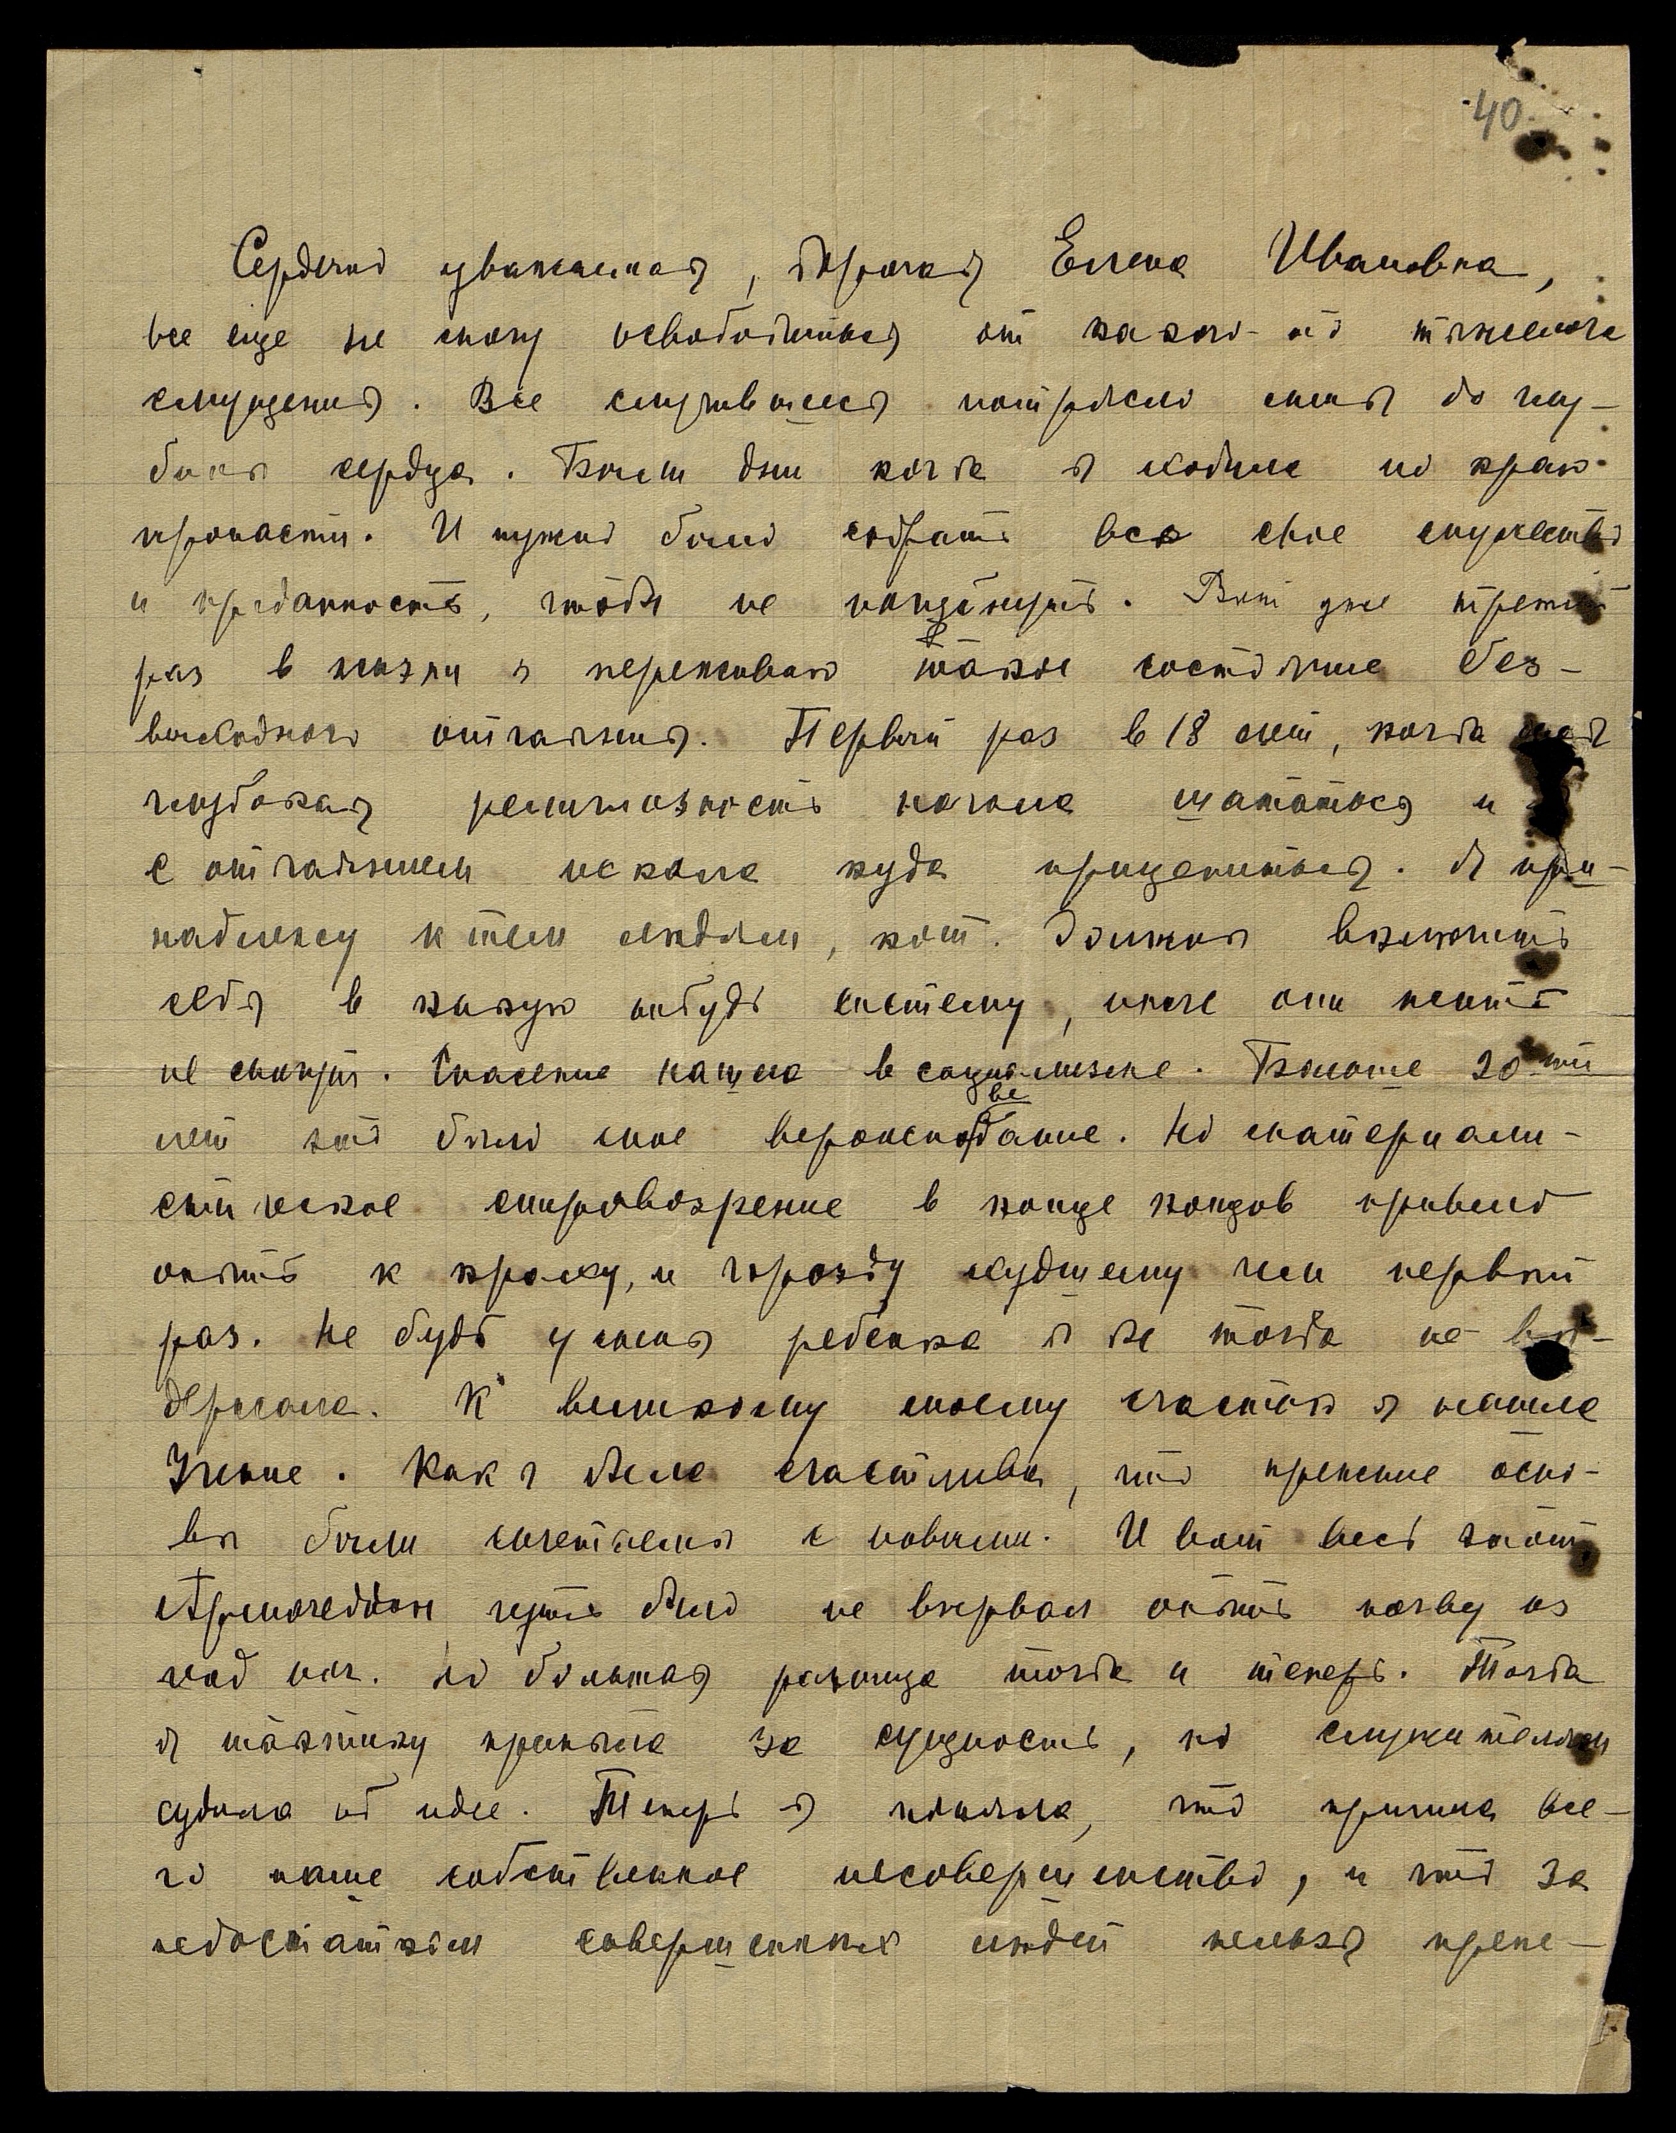 40.
Сердечно уважаемая, дорогая Елена Ивановна,
все еще не могу освободиться от какого-то тяжелого
смущения. Все случившееся потрясло меня до глу-
бины сердца. Были дни когда я ходила по краю
пропасти. И нужно было собрать все свое мужество
и преданность, чтобы не пошатнуть. Вот уже третий
раз в жизни я переживаю такое состояние без-
выходного отчаяния. Первый раз в 18 лет, когда моя
глубокая религиозность начала шататься и я
с отчаянием искала куда прицепиться. Я при-
надлежу к тем людям, кот. должны включить
себя в какую нибудь систему, иначе они жить
не могут. Спасение нашла в социализме. Больше 20-ти
лет это было мое вероисповедание. Но материали-
стическое мировозрение в конце концов привело
опять к краху, и гораздо худшему чем первый
раз. Не будь у меня ребенка я бы тогда не вы-
держала. К великому моему счастью я нашла
Учение. Как я была счастлива, что прежние осно-
вы были сочетаемы с новыми. И вот весь этот
Армагеддон чуть было не вырвал опять почву из
под ног. Но большая разница тогда и теперь. Тогда
я тактику приняла за сущность, по служителям
судила об идее. Теперь я поняла, что причина все-
го наше собственное несовершенство, и что за
недостатком совершенных людей нельзя прене-